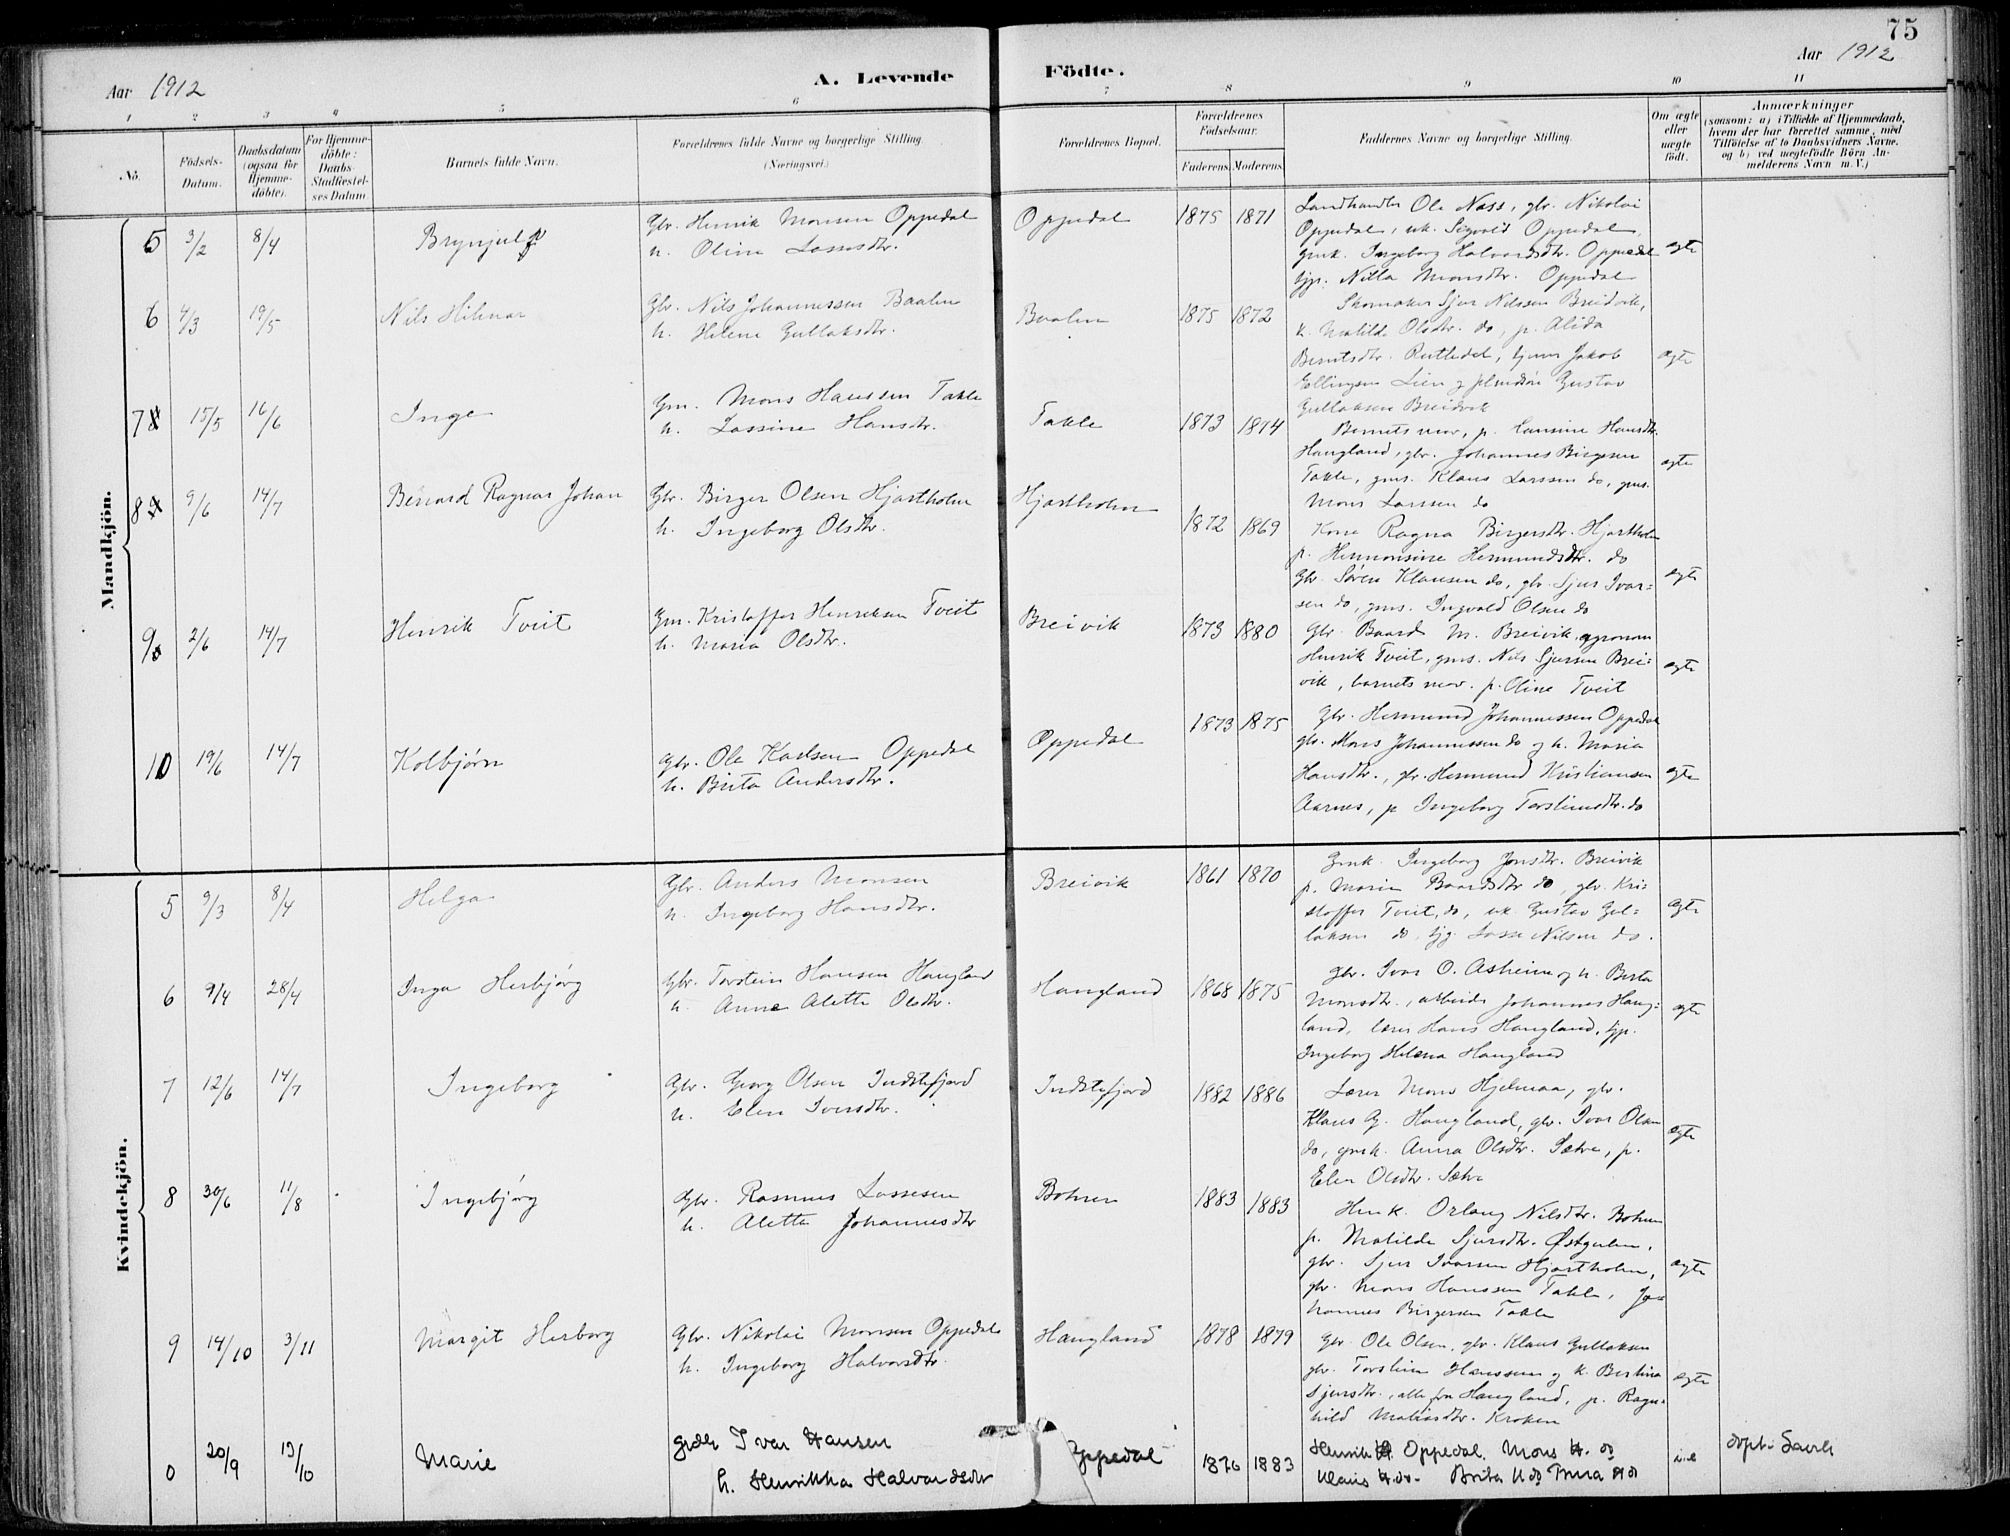 75
Aar 1912
A. Levende Födte.
Aar 1912
1 2 3 4 5 6 7 8 9 10 11
No. Födsels-Datum. Daabsdatum (ogsaa for Hjemme-döbte). For Hjemme-döbte: Daabs-Stadfæstel-ses Datum Barnets fulde Navn. Forældrenes fulde Navne og borgerlige Stilling. (Næringsvei.) Forældrenes Bopæl. Forældrenes Födselsaar. Faderens Moderens Faddernes Navne og borgerlige Stilling. Om ægte eller uægte födt. Anmærkninger (saasom: a) i Tilfælde af Hjemmedaab, hvem der har forrettet samme, med Tilföielse af to Daabsvidners Navne, og b) ved uægtefödte Börn An-melderens Navn m. V.)
Mandkjön.
5 3/2 8/4 Brynjulf
Gbr. Henrik Monsen Oppedal
h. Oline Lassesdtr.
Oppedal 1875 1871
Landhandler Ole Næss, gbr. Nikolai
Oppedal, uk. Sigvald Oppedal,
gmk. Ingeborg Halvardsdtr. Oppedal
tjp. Nilla Monsdtr. Oppedal
ægte
6 4/3 19/5 Nils Hilmar
Gbr. Nils Johannessen Baalen
h. Helene Gullaksdtr.
Baalen 1875 1872
Skomaker Sjur Nilssen Breidvik,
k. Matilde Olsdtr. do, p. Alida
Berntsdtr. Rutledal, Jakob
Ellingsen Lien og Gustav
Gullaksen Breidvik
ægte
7 15/5 16/6 Inge
Gm. Mons Hanssen Takle
h. Lassine Hansdtr.
Takle 1873 1874
Barnets mor, p. Hansdtr.
Haugland, gbr. Johannes Birgersen
Takle, gms. Klaus Larssen do, gms.
Mons Larssen do
ægte
8 9/6 14/7 Bernard Ragnar Johan
Gbr. Birger Olsen Hjartholm
h. Ingeborg Olsdtr.
Hjartholm 1872 1869
Kone Ragna Birgersdtr. Hjartholm
p. Hermonsine Hermundsdtr. do
Gbr. Søren Klausen do, gbr. Sjur Ivar-
sen do, gms. Ingvald Olsen do
ægte
9 2/6 14/7 Henrik Tveit
Gm. Kristoffer Henriksen Tveit
h. Maria Olsdtr.
Breivik 1873 1880
Gbr. Baard M. Breivik, agronom
Henrik Tveit, gms. Nils Sjursen Brei-
vik, barnets mor. p. Oline Tveit
ægte
10 19/6 14/7 Kolbjørn
Gbr. Ole Karlsen Oppedal
h. Brita Andersdtr.
Oppedal 1873 1875
Gbr. Hermund Johannessen Oppedal
gbr. Mons Johannessen do og h. Maria
Hansdtr., gbr. Hermund Kristiansen
Aarnes, p Ingeborg Torsteinsdtr. do
ægte
Kvindekjön.
5 9/3 8/4 Helga
Gbr. Anders Monsen
h. Ingeborg Hansdtr.
Breivik 1861 1870
Gmk. Ingeborg Jonsdtr. Breivik
p. Marie Baardsdtr do, gbr. Kris
stoffer Tveit, do, uk. Gustav Gul-
laksen do, tjg. Lasse Nilsen do.
ægte
6 9/4 28/4 Inga Herbjørg
Gbr. Torstein Hansen Haugland
h. Anne Alette Olsdtr.
Haugland 1868 1875
Gbr. Ivar O. Asheim og h. Berta
Monsdtr., arbeider Johannes Haug-
land, lærer Hans Haugland, tjp.
Ingeborg Helena Haugland
ægte
7 12/6 14/7 Ingeborg
Gbr. Georg Olsen Indstefjord
h. Elen Iversdtr.
Indstefjord 1882 1886
Lærer Mons Hjelmaa, gbr.
Klaus G. Haugland, gbr. Ivar Olsen
do, gmk. Anna Olsdtr. Sætre, p.
Elen Olsdtr. Sætre
ægte
8 30/6 11/8 Ingebjørg
Gbr. Rasmus Lassesen
h. Alette Johannesdtr
Bohnen 1883 1883
Nilsdtr. Bohnen
p. Matilde Sjursdtr. Østgulen,
gbr. Sjur Ivarsen Hjartholm,
gbr. Mons Hanssen Takle, Jo-
hannes Birgersen Takle
ægte
9 14/10 3/11 Margit Herborg
Gbr. Nikolai Monsen Oppedal
h. Ingeborg Halvarsdtr.
Haugland 1878 1879
Gbr. Ole Olsen, gbr. Klaus Gullaksen
gbr. Torstein Hanssen og k. Bertina
Sjursdtr., alle fra Haugland, p. Ragn-
hild Matiasdtr. Kroken
ægte
0 20/9 13/10 Marie
Ivar Hansen
h. Henrikka Halvardsdtr
Oppedal 1876 1883
Henrik H Oppedal, Mons H. do
Klaus H. do. Brita H do